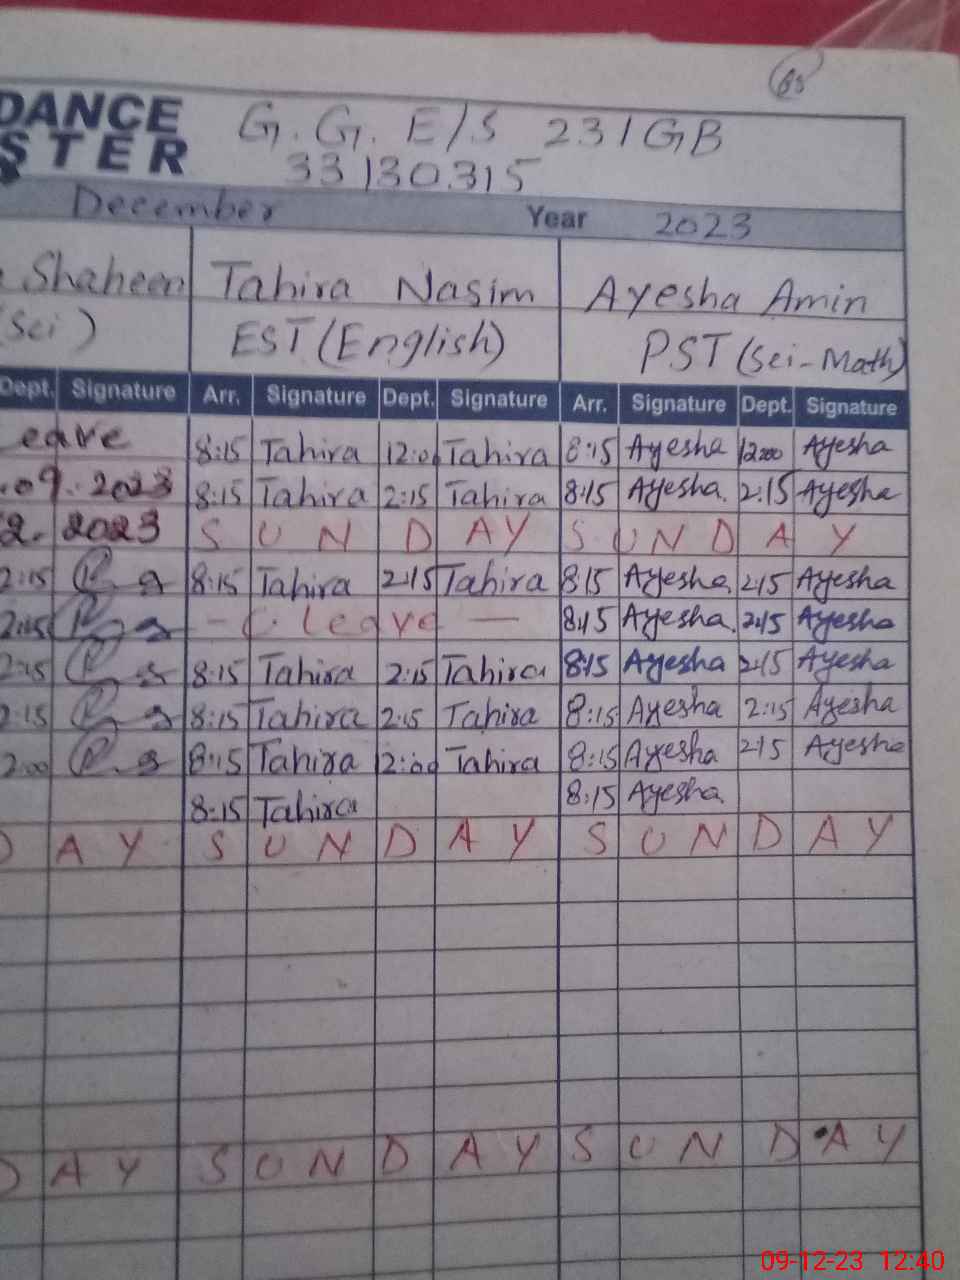 65
DANCE G.G.E/S 231GB
STER 33130315
December Year 2023
Shaheen Tahira Nasim Ayesha Amin
(Sci) EST (English) PST (Sci-Math)
Dept. Signature Arr. Signature Dept. Signature Arr. Signature Dept. Signature
eave 8:15 Tahira 12:00 Tahira 8:15 Ayesha 12:00 Ayesha
.09.2023 8:15 Tahira 2:15 Tahira 8:15 Ayesha. 2:15 Ayesha
2.2023 S U N D A Y S U N D A Y
2:15 8:15 Tahira 2:15 Tahira 8:15 Ayesha 2:15 Ayesha
2:15 - C. leave - 8:15 Ayesha. 2:15 Ayesha
2:15 8:15 Tahira 2:15 Tahira 8:15 Ayesha 2:15 Ayesha
2:15 8:15 Tahira 2:15 Tahira 8:15 Ayesha 2:15 Ayesha
2:00 8:15 Tahira 12:00 Tahira 8:15 Ayesha 2:15 Ayesha
8:15 Tahira 8:15 Ayesha
D A Y S U N D A Y S U N D A Y
D A Y S U N D A Y S U N D A Y
09-12-23 12:40